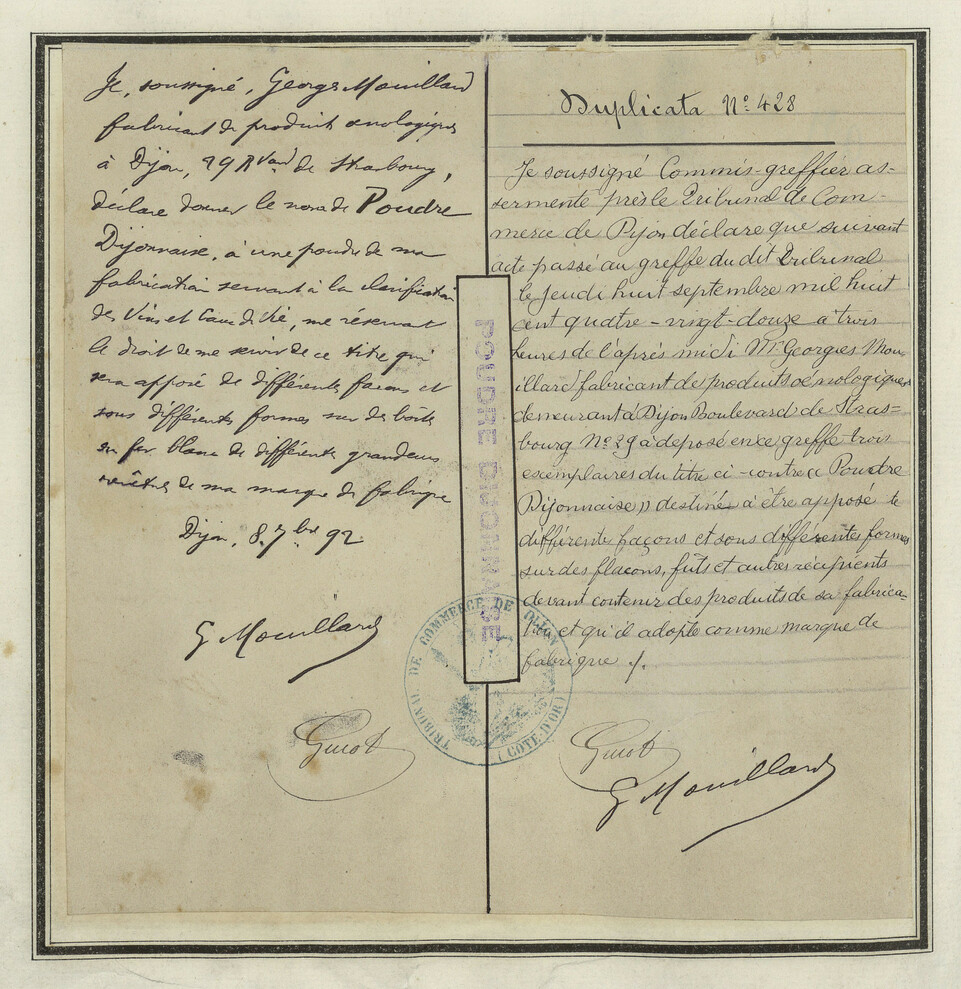 Je, soussigné, Georges Mouillard
fabricant de produits œnologiques
à Dijon, 29 Bvard de Strasbourg,
déclare donner le nom de Poudre
Dijonnaise, à une poudre de ma
fabrication servant à la clarification
des Vins et Eaux de Vie, me réservant
le droit de me servir de ce titre qui
sera apposé de différentes facons et
sous différentes formes sur des boites
en fer blanc de différentes grandeurs
revêtues de ma marque de fabrique
Dijon, 8. 7bre 92.
G Mouillard
Guiot
POUDRE DIJONNAISE
TRIBUNAL DE COMMERCE DE DIJON
(COTE-D'OR)
Duplicata No 428
Je soussigné Commis-greffier as-
sermente près le Tribunal de Com-
merce de Dijon déclare que suivant
acte passé au greffe du dit Tribunal
le Jeudi huit septembre mil huit
cent quatre-vingt-douze à trois
heures de l'après midi Mr Georges Mou-
illard fabricant de produits œnologiques
demeurant à Dijon Boulevard de Stras-
bourg No 29 a déposé en ce greffe trois
exemplaires du titre ci-contre « Poudre
Dijonnaise » destiné à être apposé de
différentes façons et sous différentes formes
sur des flacons, fûts et autres récipients
devant contenir des produits de sa fabrica-
tion et qu'il adopte comme marque de
fabrique ./.
Guiot
G Mouillard